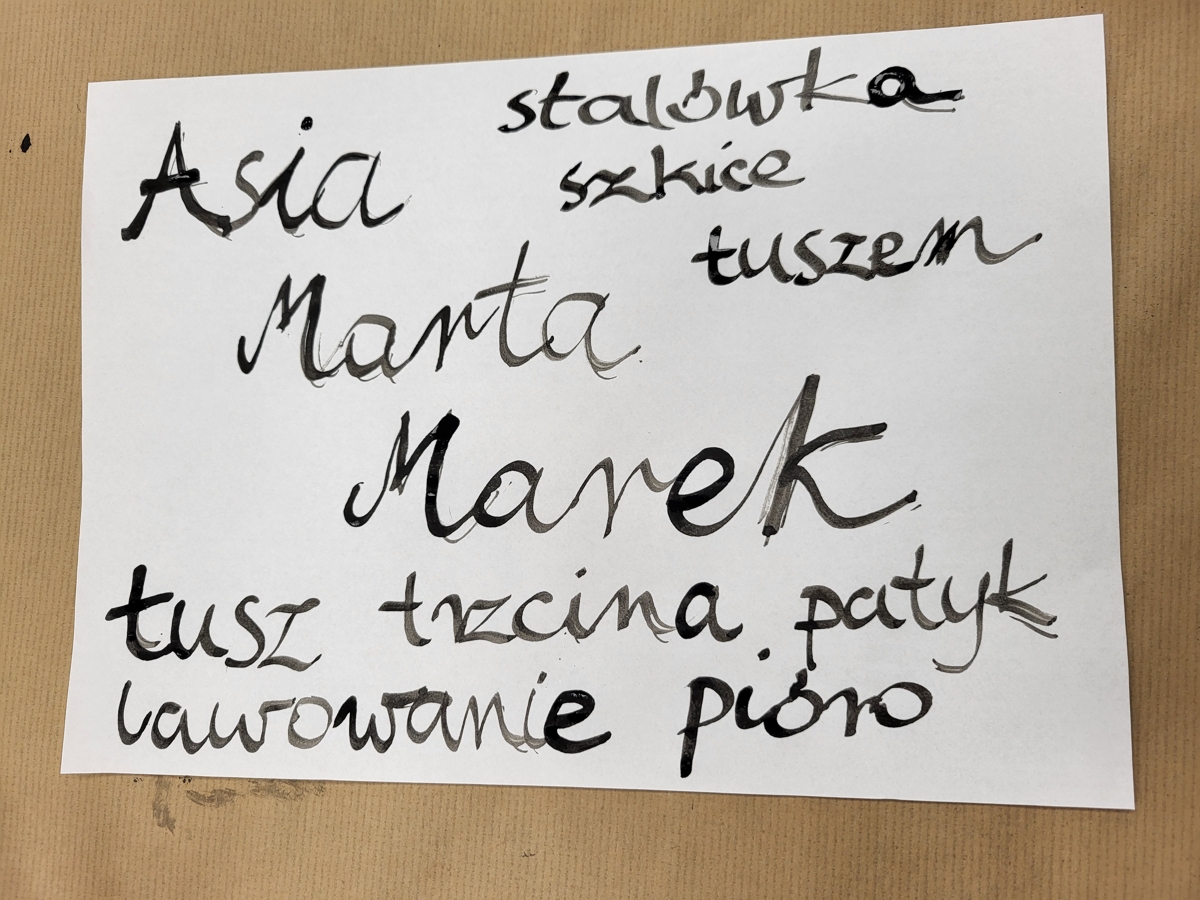 stalówka
Asia
szkice
tuszem
Marta
Marek
tusz trzcina patyk
lawowanie pióro